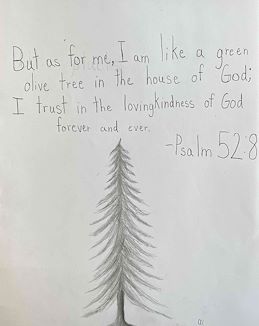 But as for me, I am like a green
olive tree in the house of God;
I trust in the lovingkindness of God
forever and ever.
-Psalm 52:8